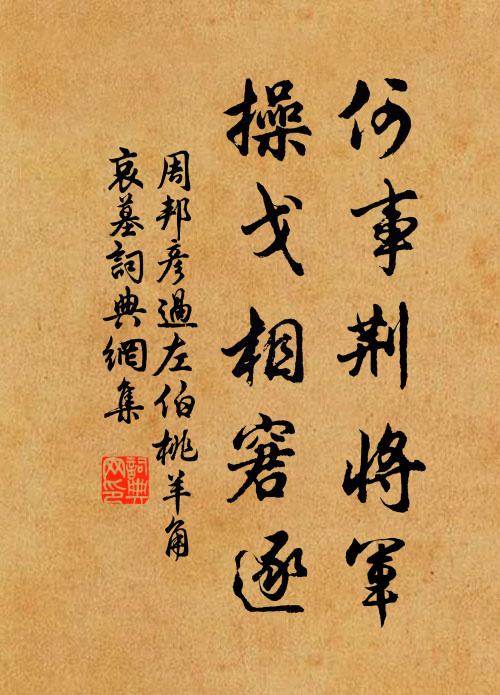 何事荆將軍
操戈相窘逐
周邦彥過左伯桃羊角
哀墓詞典網集
詞典